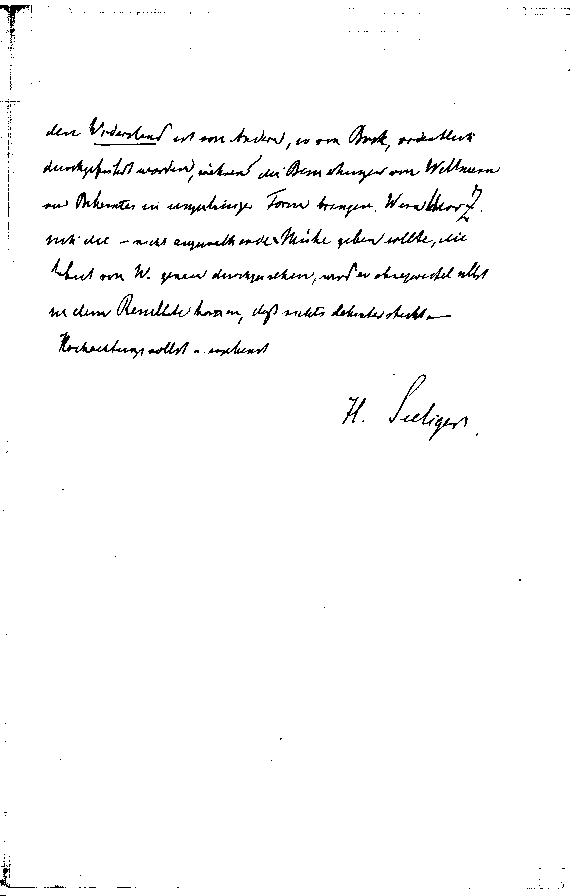 dem Widerstand ist von Anderen, so von Bock, ordentlich
durchgeführt worden, während die Bemerkungen von Wellmann
nur Bekanntes in Form bringen. Wenn Herr Z.
sich die – nicht – Mühe geben wollte, die
Arbeit von W. genau durchzusehen, wird er ohnezweifel selbst
zu dem Resultate kommen, daß nichts dahinter steckt –
Hochachtungsvollst u. ergebenst
H. Seeliger.